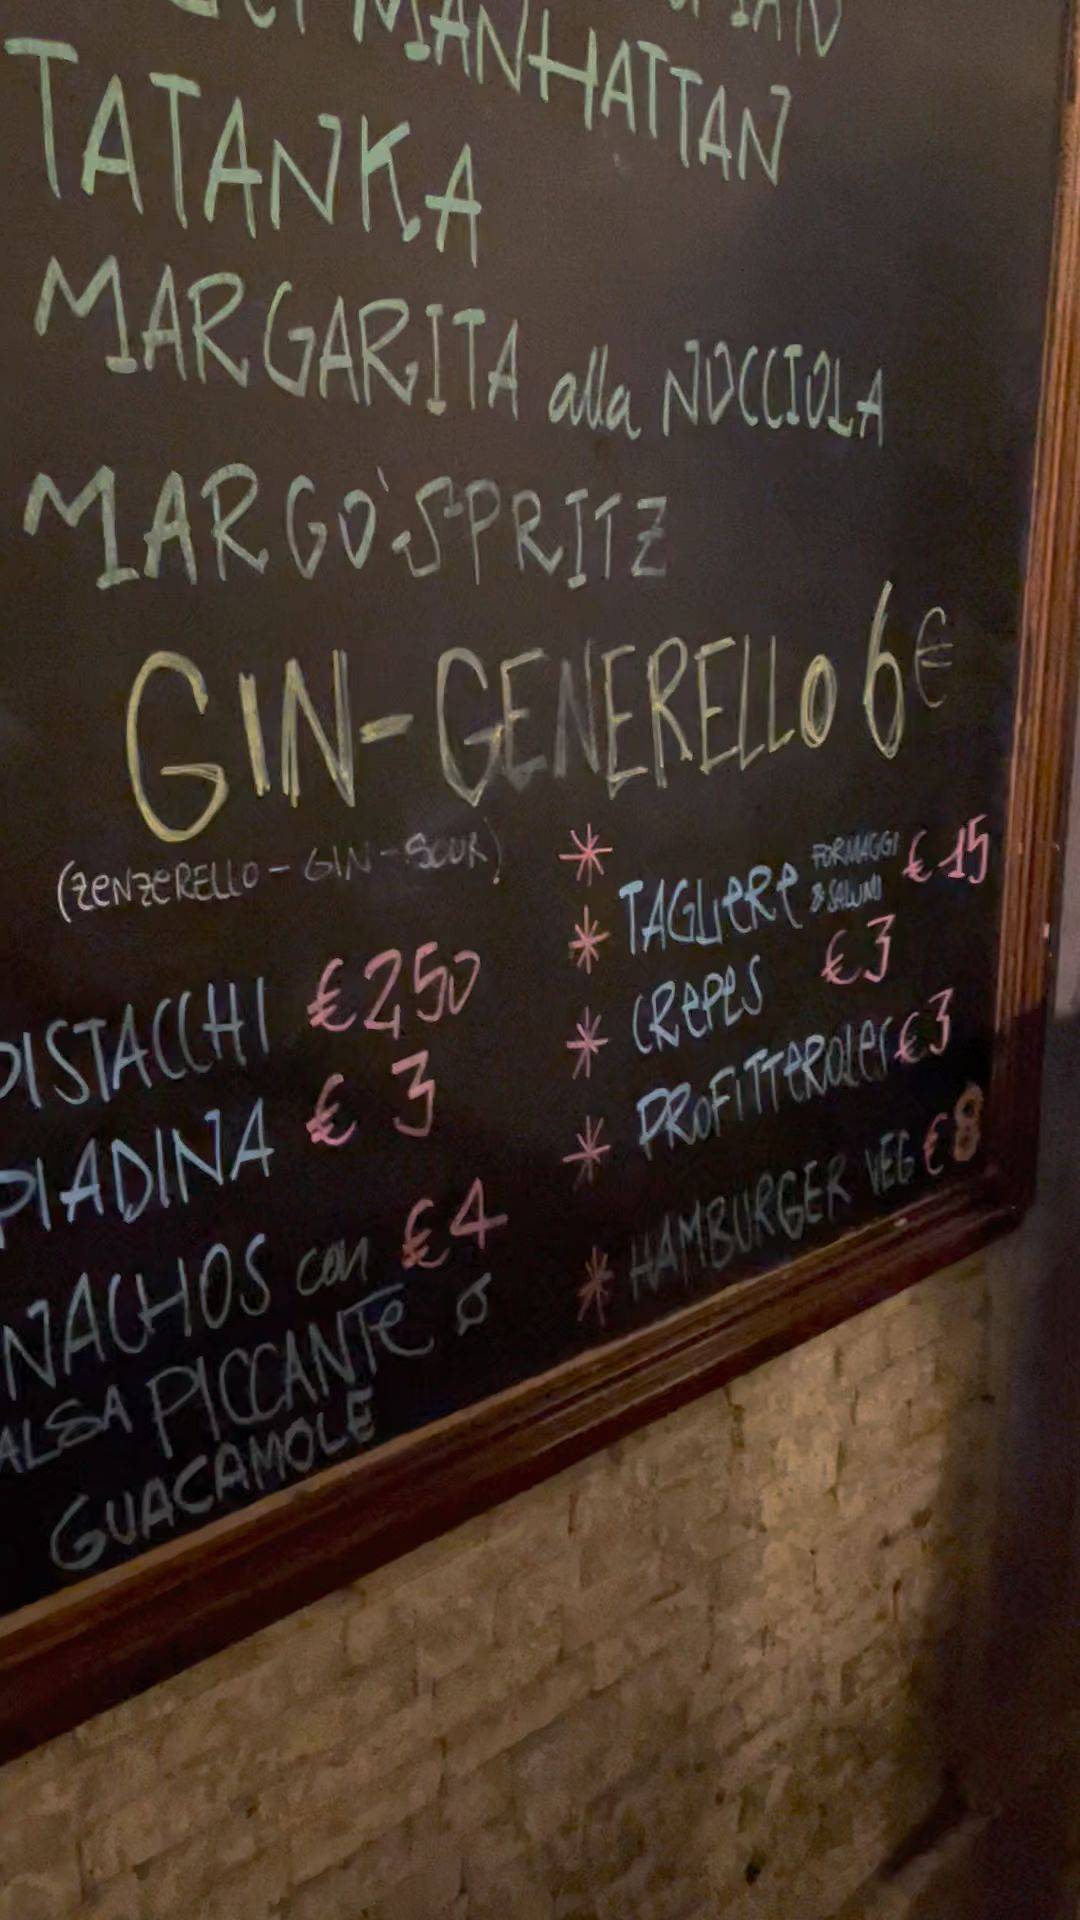 MANHATTAN
TATANKA
MARGARITA alla NOCCIOLA
MARGO' SPRITZ
GIN-GENERELLO 6€
(ZENZERELLO - GIN - SOUR)
PISTACCHI €2,50
PIADINA € 3
NACHOS con €4
ALSA PICCANTE o
GUACAMOLE
*
* TAGLIERE FORMAGGI & SALUMI € 15
* CREPES € 3
* PROFITTEROLES € 3
* HAMBURGER VEG € 8